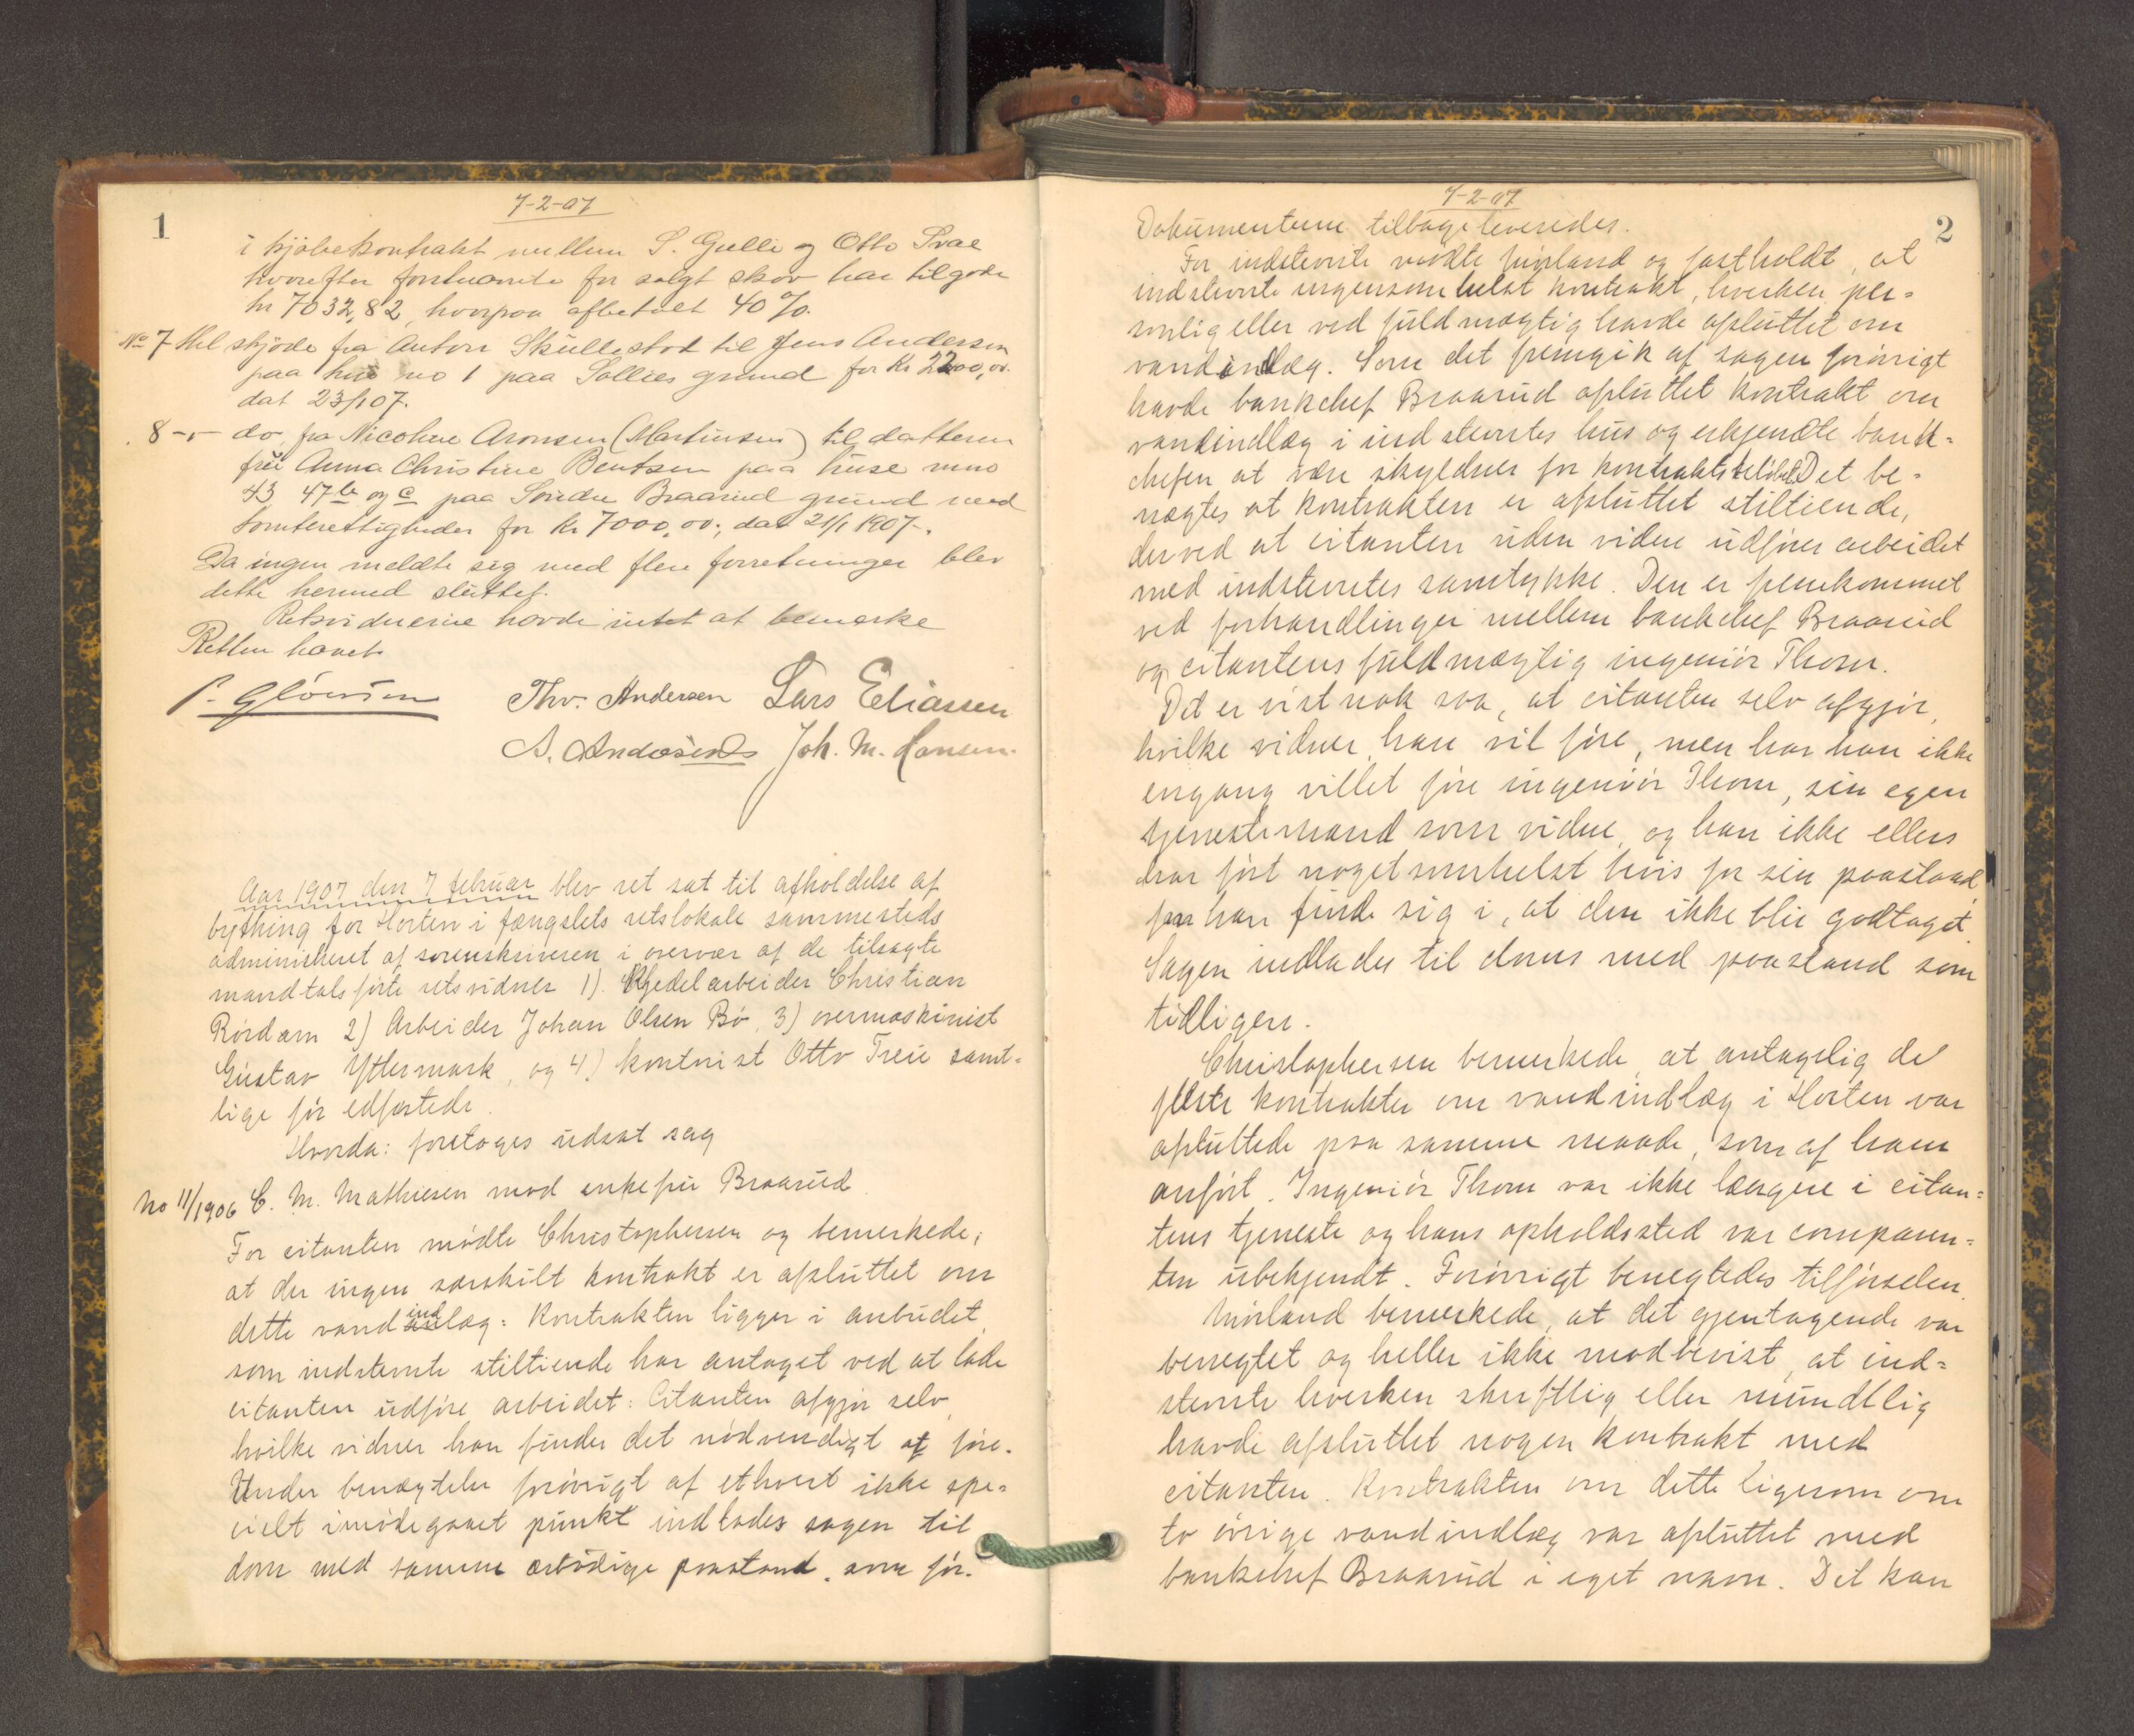 1
7-2-07
i kjøbekontrakt mellem S. Gulli og Otto Svae
hvorefter forstnævnte for solgt skov har tilgode
kr 7032,82, hvorpaa afbetalt 40 %.
No 7 Thl skjøde fra Anton Skullestad til Jens Andersen
paa hus no 1 paa Sollies grund for Kr 2200,00.
dat 23/1 07.
8 -"- do. fra Nicoline Aronsen (Martinsen) til datteren
frü Anna Christine Bentsen paa huse mno
43 47b og c paa Søndre Braarud grund med
tomterettigheder for kr 7000,00; dat 21/1 1907.
Da ingen meldte sig med flere forretninger blev
dette hermed sluttet.
Retsvidnerne havde intet at bemærke
Retten hævet.
Thv. Andersen Lars Eliassen
A. Andersen Joh. M. Hansen.
Aar 1907 den 7 februar blev ret sat til afholdelse af
bything for Horten i fængslets retslokale sammesteds
administreret af sorenskriveren i overvær af de tilsagte
mandtalsførte retsvidner 1). Kjedelarbeider Christian
Rördam 2) Arbeider Johan Olsen Bö, 3) overmaskinist
Gustav Yttermark, og 4) kontorist Otto Treu samt-
lige før edfæstede.
Hvorda: foretoges udsat sag
No 11/1906 C. M. Mathiesen mod enkefrü Braarud
For citanten mødte Christophersen og bemerkede,
at der ingen særskilt kontrakt er afsluttet om
dette vandindlæg: Kontrakten ligger i anbudet,
som indstevnte stiltiende har antaget ved at lade
citanten udføre arbeidet: Citanten afgjør selv,
hvilke vidner han finder det nødvendigt at føre.
Under benægtelse forøvrigt af ethvert ikke spe-
cielt imødegaaet punkt indlades sagen til
dom med samme ærbødige paastand, som før.
7-2-07
2
Dokumenterne tilbageleveredes.
For indstevnte mødte Mörland og fastholdt, at
indstevnte ingensomhelst kontrakt, hverken per-
sonlig eller ved fuldmægtig havde afsluttet om
vandindlæg. Som det fremgik af sagen forøvrigt
havde bankchef Braarud afsluttet kontrakt om
vandindlæg i indstevntes hus og erkjendte bank-
chefen at være skyldner for kontraktsbeløbet. Det be-
nægtes at kontrakten er afsluttet stiltiende,
derved at citanten uden videre udfører arbeidet
med indstevntes samtykke. Den er fremkommet
ved forhandlinger mellem bankchef Braarud
og citantens fuldmægtig ingeniør Thom.
Det er vistnok saa, at citanten selv afgjør,
hvilke vidner han vil føre, men har han ikke
engang villet føre ingeniør Thom, sin egen
tjenestemand som vidne, og han ikke ellers
har ført nogetsomhelst bevis for sin paastand,
faar han finde sig i, at den ikke blir godtaget.
Sagen indlades til doms med paastand som
tidligere.
Christophersen bemerkede, at antagelig de
fleste kontrakter om vandindlæg i Horten var
afsluttede paa samme maade, som af ham
anført. Ingeniør Thom var ikke længere i citan-
tens tjeneste og hans opholdssted var comparen-
ten ubekjendt. Forøvrigt benegtedes tilførselen.
Mörland bemerkede, at det gjentagende var
benegtet og heller ikke modbevist, at ind-
stevnte hverken skriftlig eller mundtlig
havde afsluttet nogen kontrakt med
citanten. Kontrakten om dette ligesom om
to øvrige vandindlæg var afsluttet med
bankchef Braarud i eget navn. Det kan